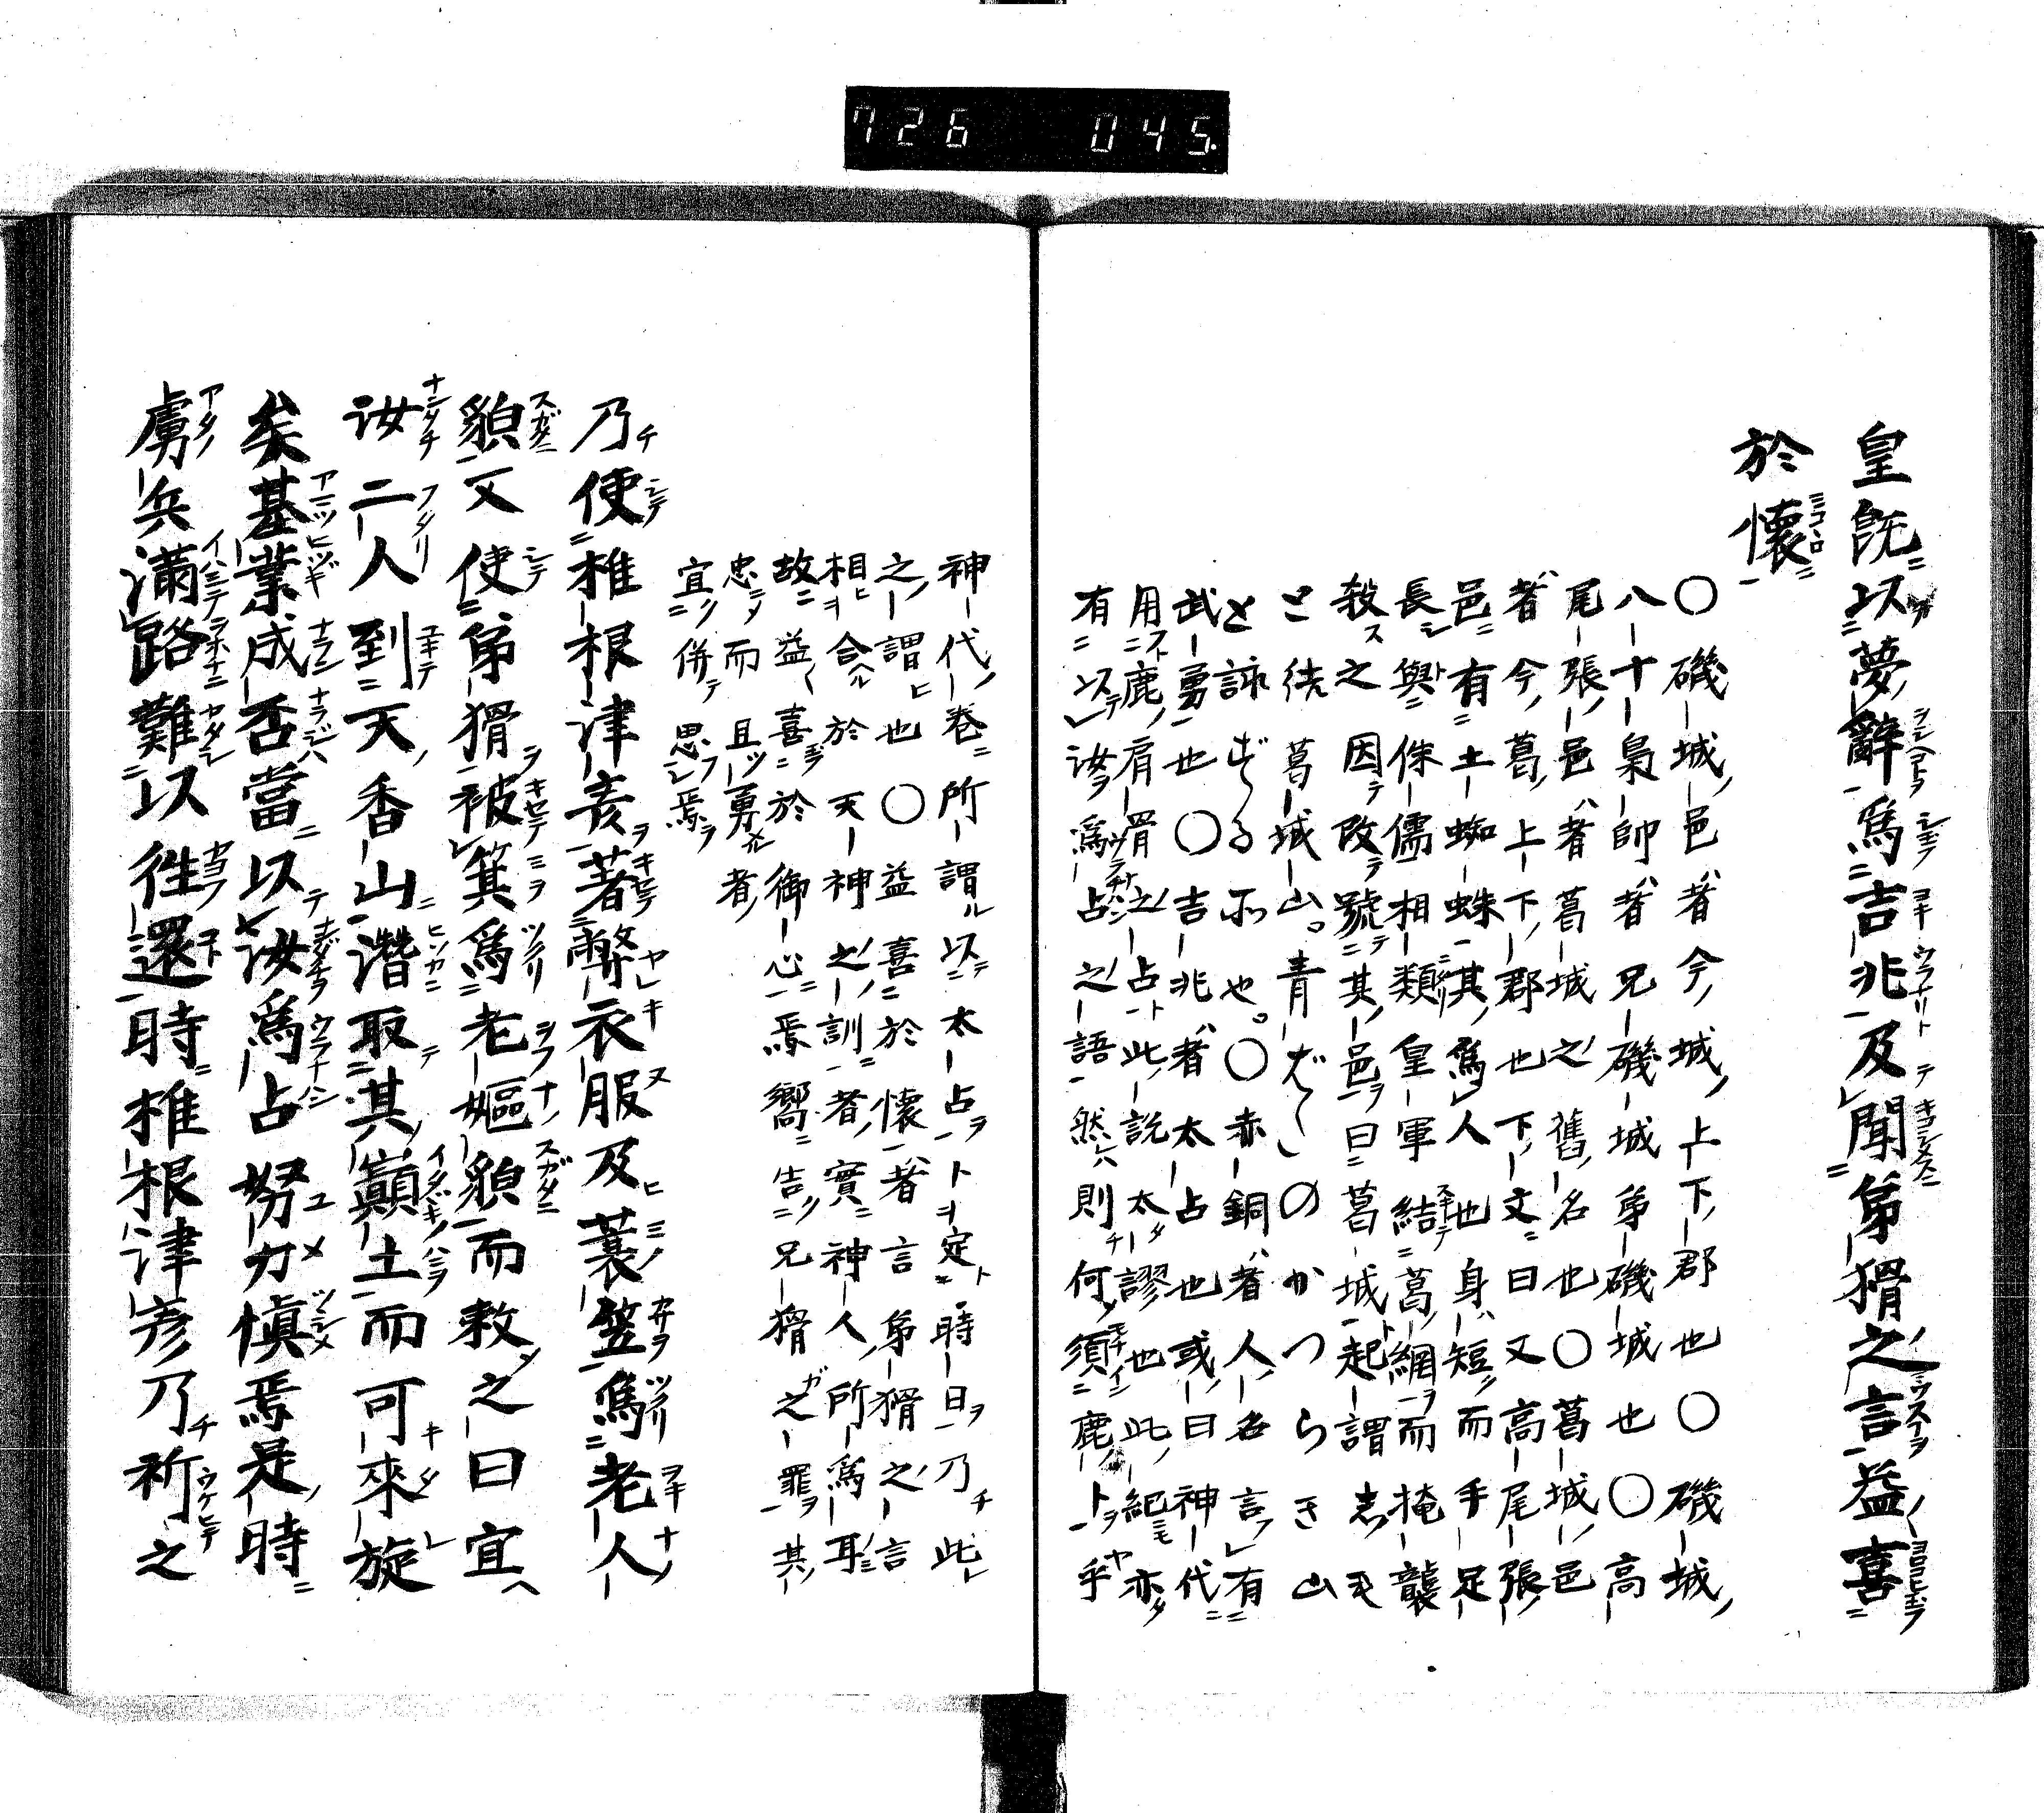 726 045
皇既以夢辭爲吉兆及聞弟猾之言益喜
於懷
〇磯城邑者今城上下郡也〇磯城
八十梟帥者兄磯城弟磯城也〇高
尾張邑者葛城之舊名也〇葛城邑
者今葛上下郡也下文曰又高尾張
邑有土蜘蛛其爲人也身短而手足
長與侏儒相類皇軍結葛網而掩襲
殺之因改號其邑曰葛城起謂
葛城山青の
赤銅者人名言有
武勇也〇吉兆者太占也或曰神代
用鹿肩骨之占此説太謬也此紀亦
有以汝爲占之語然則何須鹿卜乎
神代卷所謂以太占卜定時日乃此
之謂也〇益喜於懷者言弟猾之言
相合於天神之訓者實神人所爲耳
故益喜於御心焉嚮告兄猾之罪其
忠而且勇者
宜併思焉
乃使椎根津彦著弊衣服及蓑笠爲老人
貌又使弟猾被箕爲老嫗貌而敕之曰宜
汝二人到天香山潛取其巓土而可來旋
矣基業成否當以汝爲占努力愼焉是時
虜兵滿路難以往還時椎根津彦乃祈之